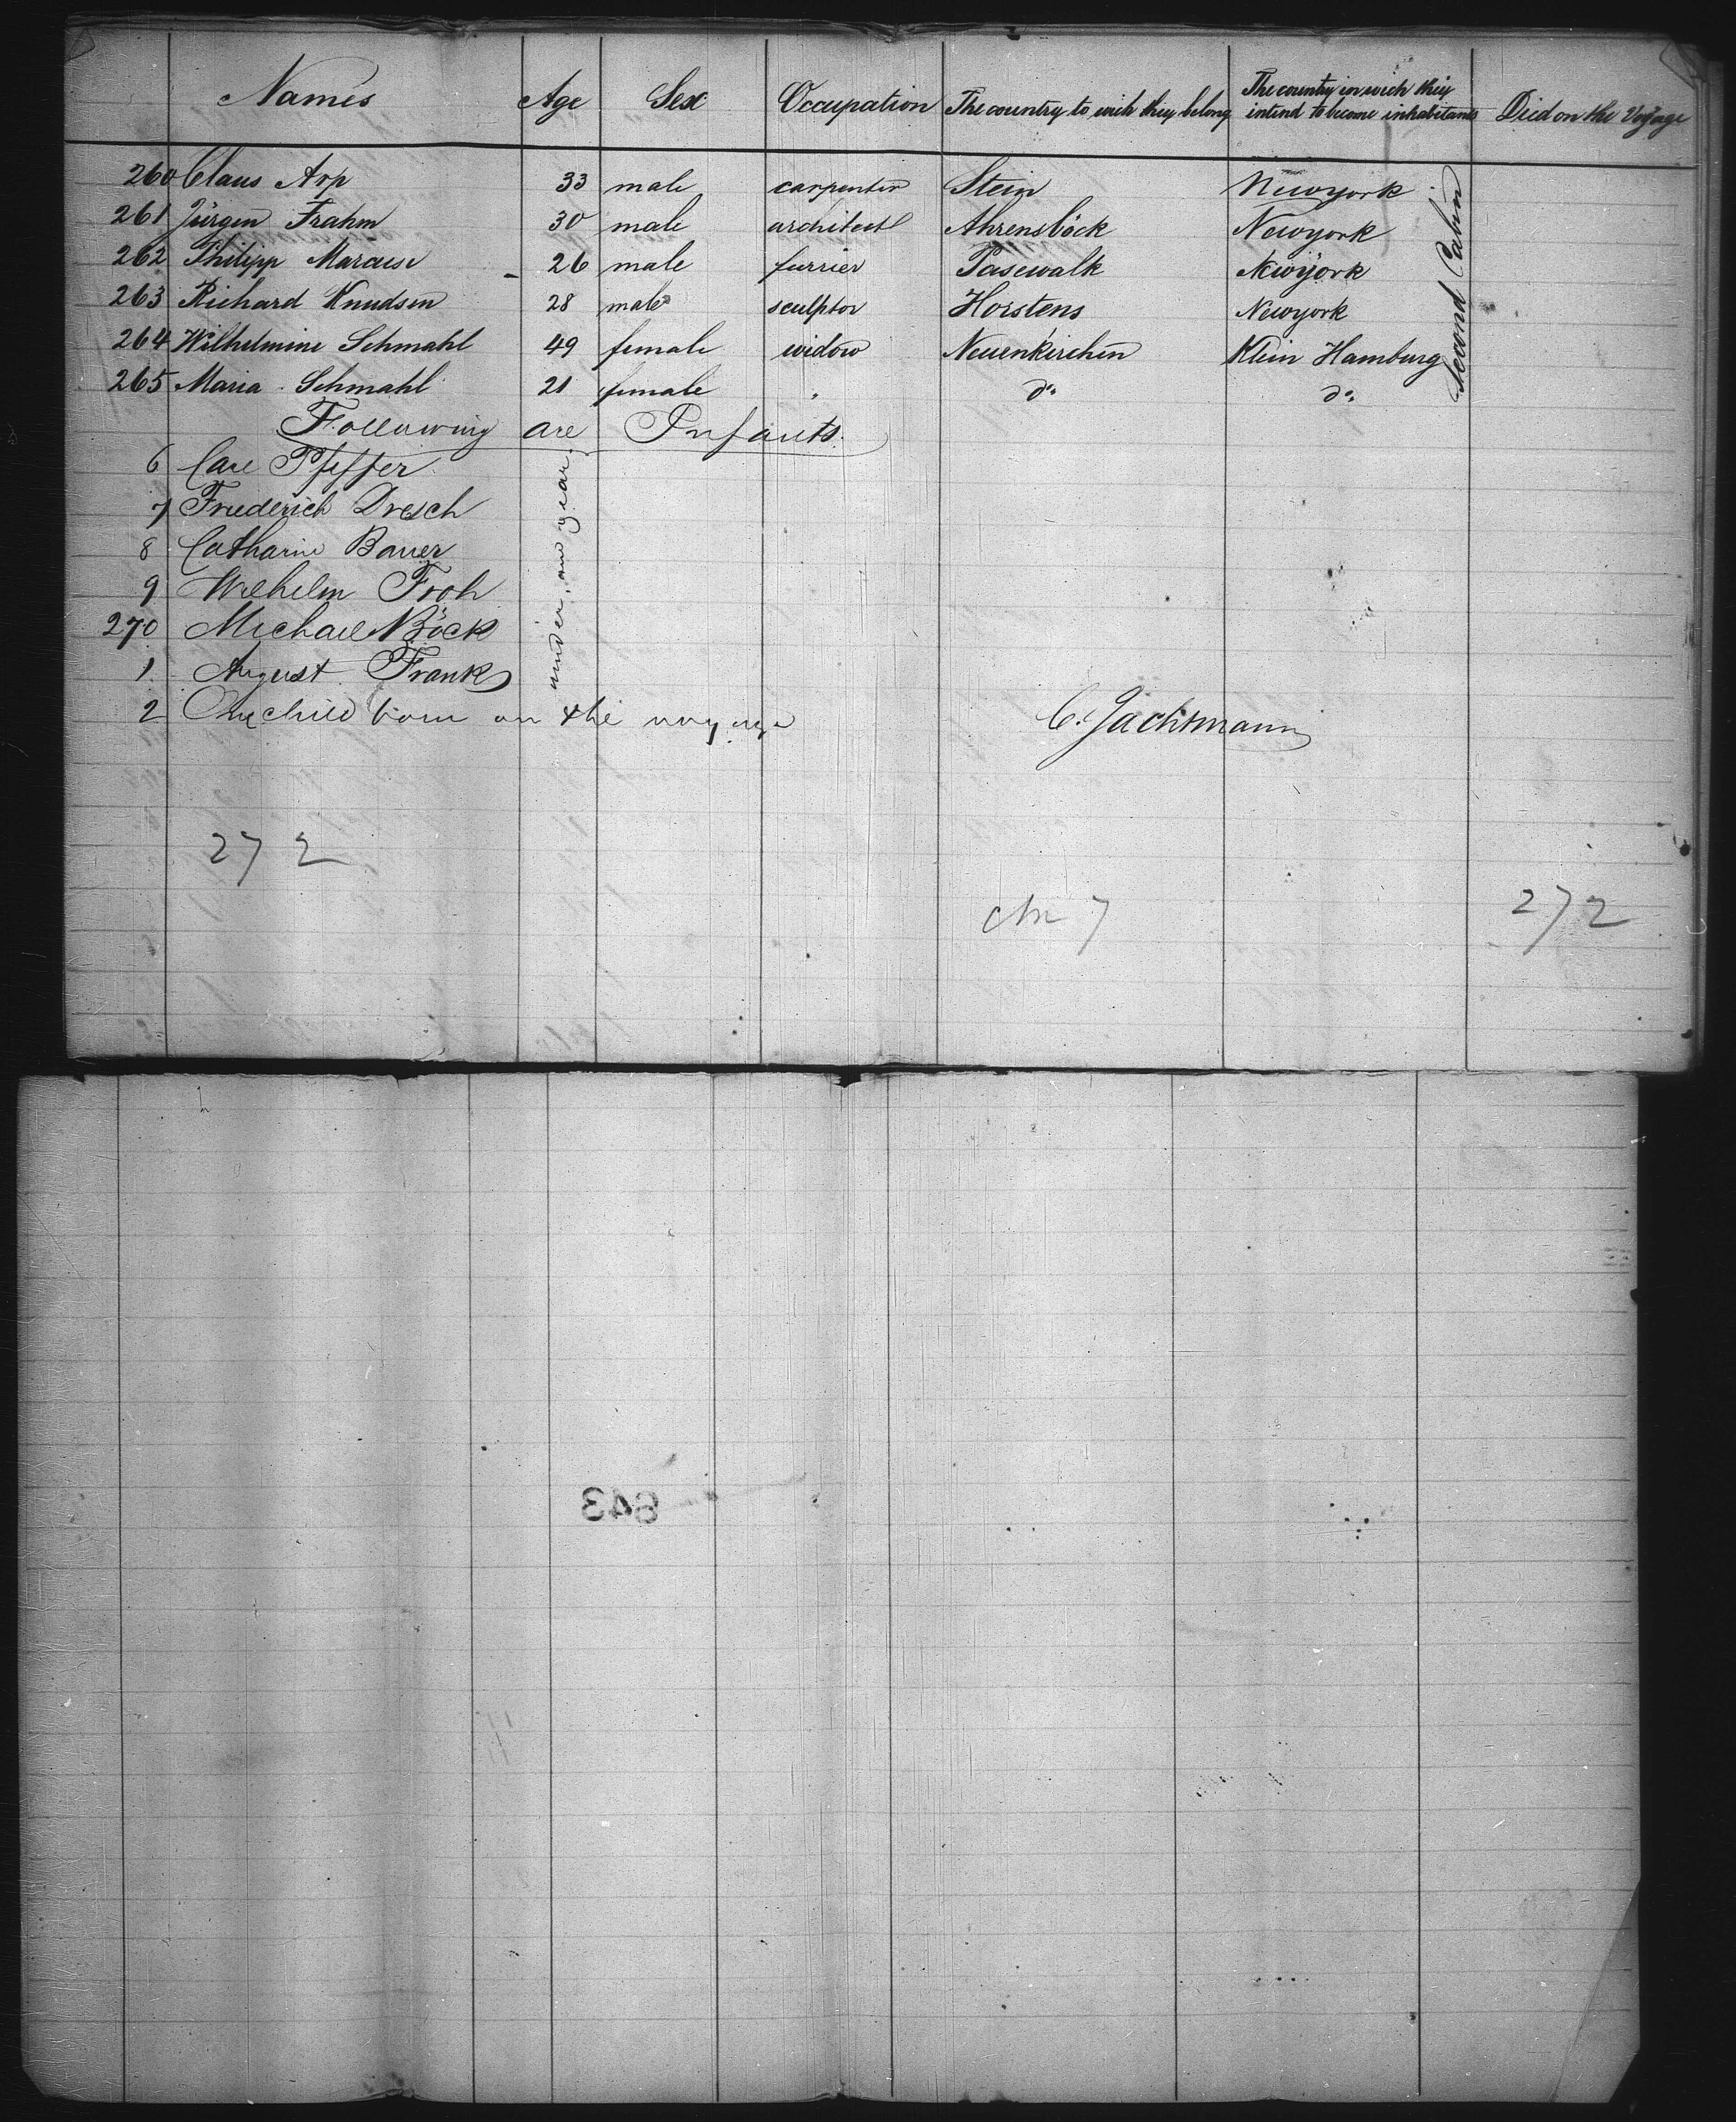 Names Age Sex Occupation The country to wich they belong The country in wich they intend to become inhabitants Died on the Voyage
260 Claus Arp 33 male carpenter Stein Newyork
261 Jürgen Frahm 30 male architect Ahrensböck Newyork
262 Philipp Marcuse 26 male furrier Pasewalk Newyork
263 Richard Knudsen 28 male sculptor Horstens Newyork
264 Wilhelmine Schmahl 49 female widow Neuenkirchen Klein Hamburg
265 Maria Schmahl 21 female " do do
Second Cabin
Following are Infants.
6 Carl Pfeffer
7 Friederich Dresch
8 Catharine Bauer
9 Wilhelm Froh
270 Michael Böck
1 August Frank
under one year
2 One child born on the voyage
C. Jachtmann
272
ch 7 272
843